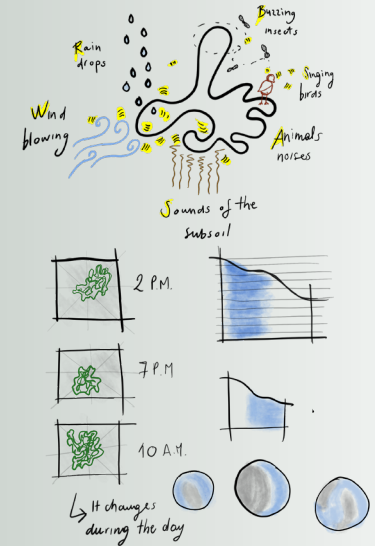 Buzzing
insects
Rain
drops
Singing
birds
Wind
blowing
Animals
noises
Sounds of the
subsoil
2 P.M.
7 P.M
10 A.M.
It changes
during the day